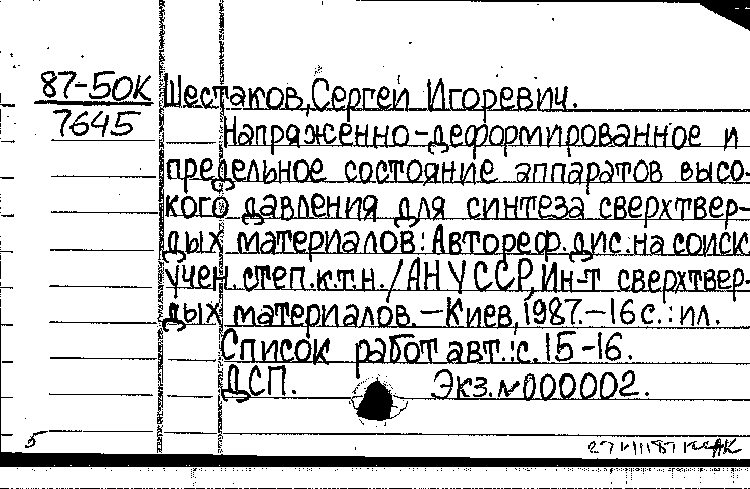 87-50К Шестаков, Сергей Игоревич.
7645 Напряженно-деформированное и
предельное состояние аппаратов высо-
кого давления для синтеза сверхтвер-
дых материалов: Автореф. дис. на соиск.
учен. степ. к.т.н. / АН УССР, Ин-т сверхтвер-
дых материалов. – Киев, 1987. – 16 с.: ил.
Список работ авт.: с. 15-16.
ДСП. Экз. № 000002.
5